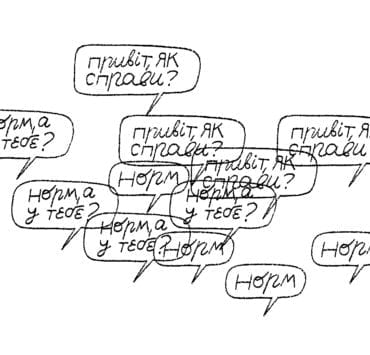 привіт, як
справи?
орм, а
тебе?
привіт, як
справи?
привіт, як
справи
привіт, як
справи?
норм
норм, а
у тебе?
норм, а
у тебе?
норм, а
у тебе?
норм
норм
норм